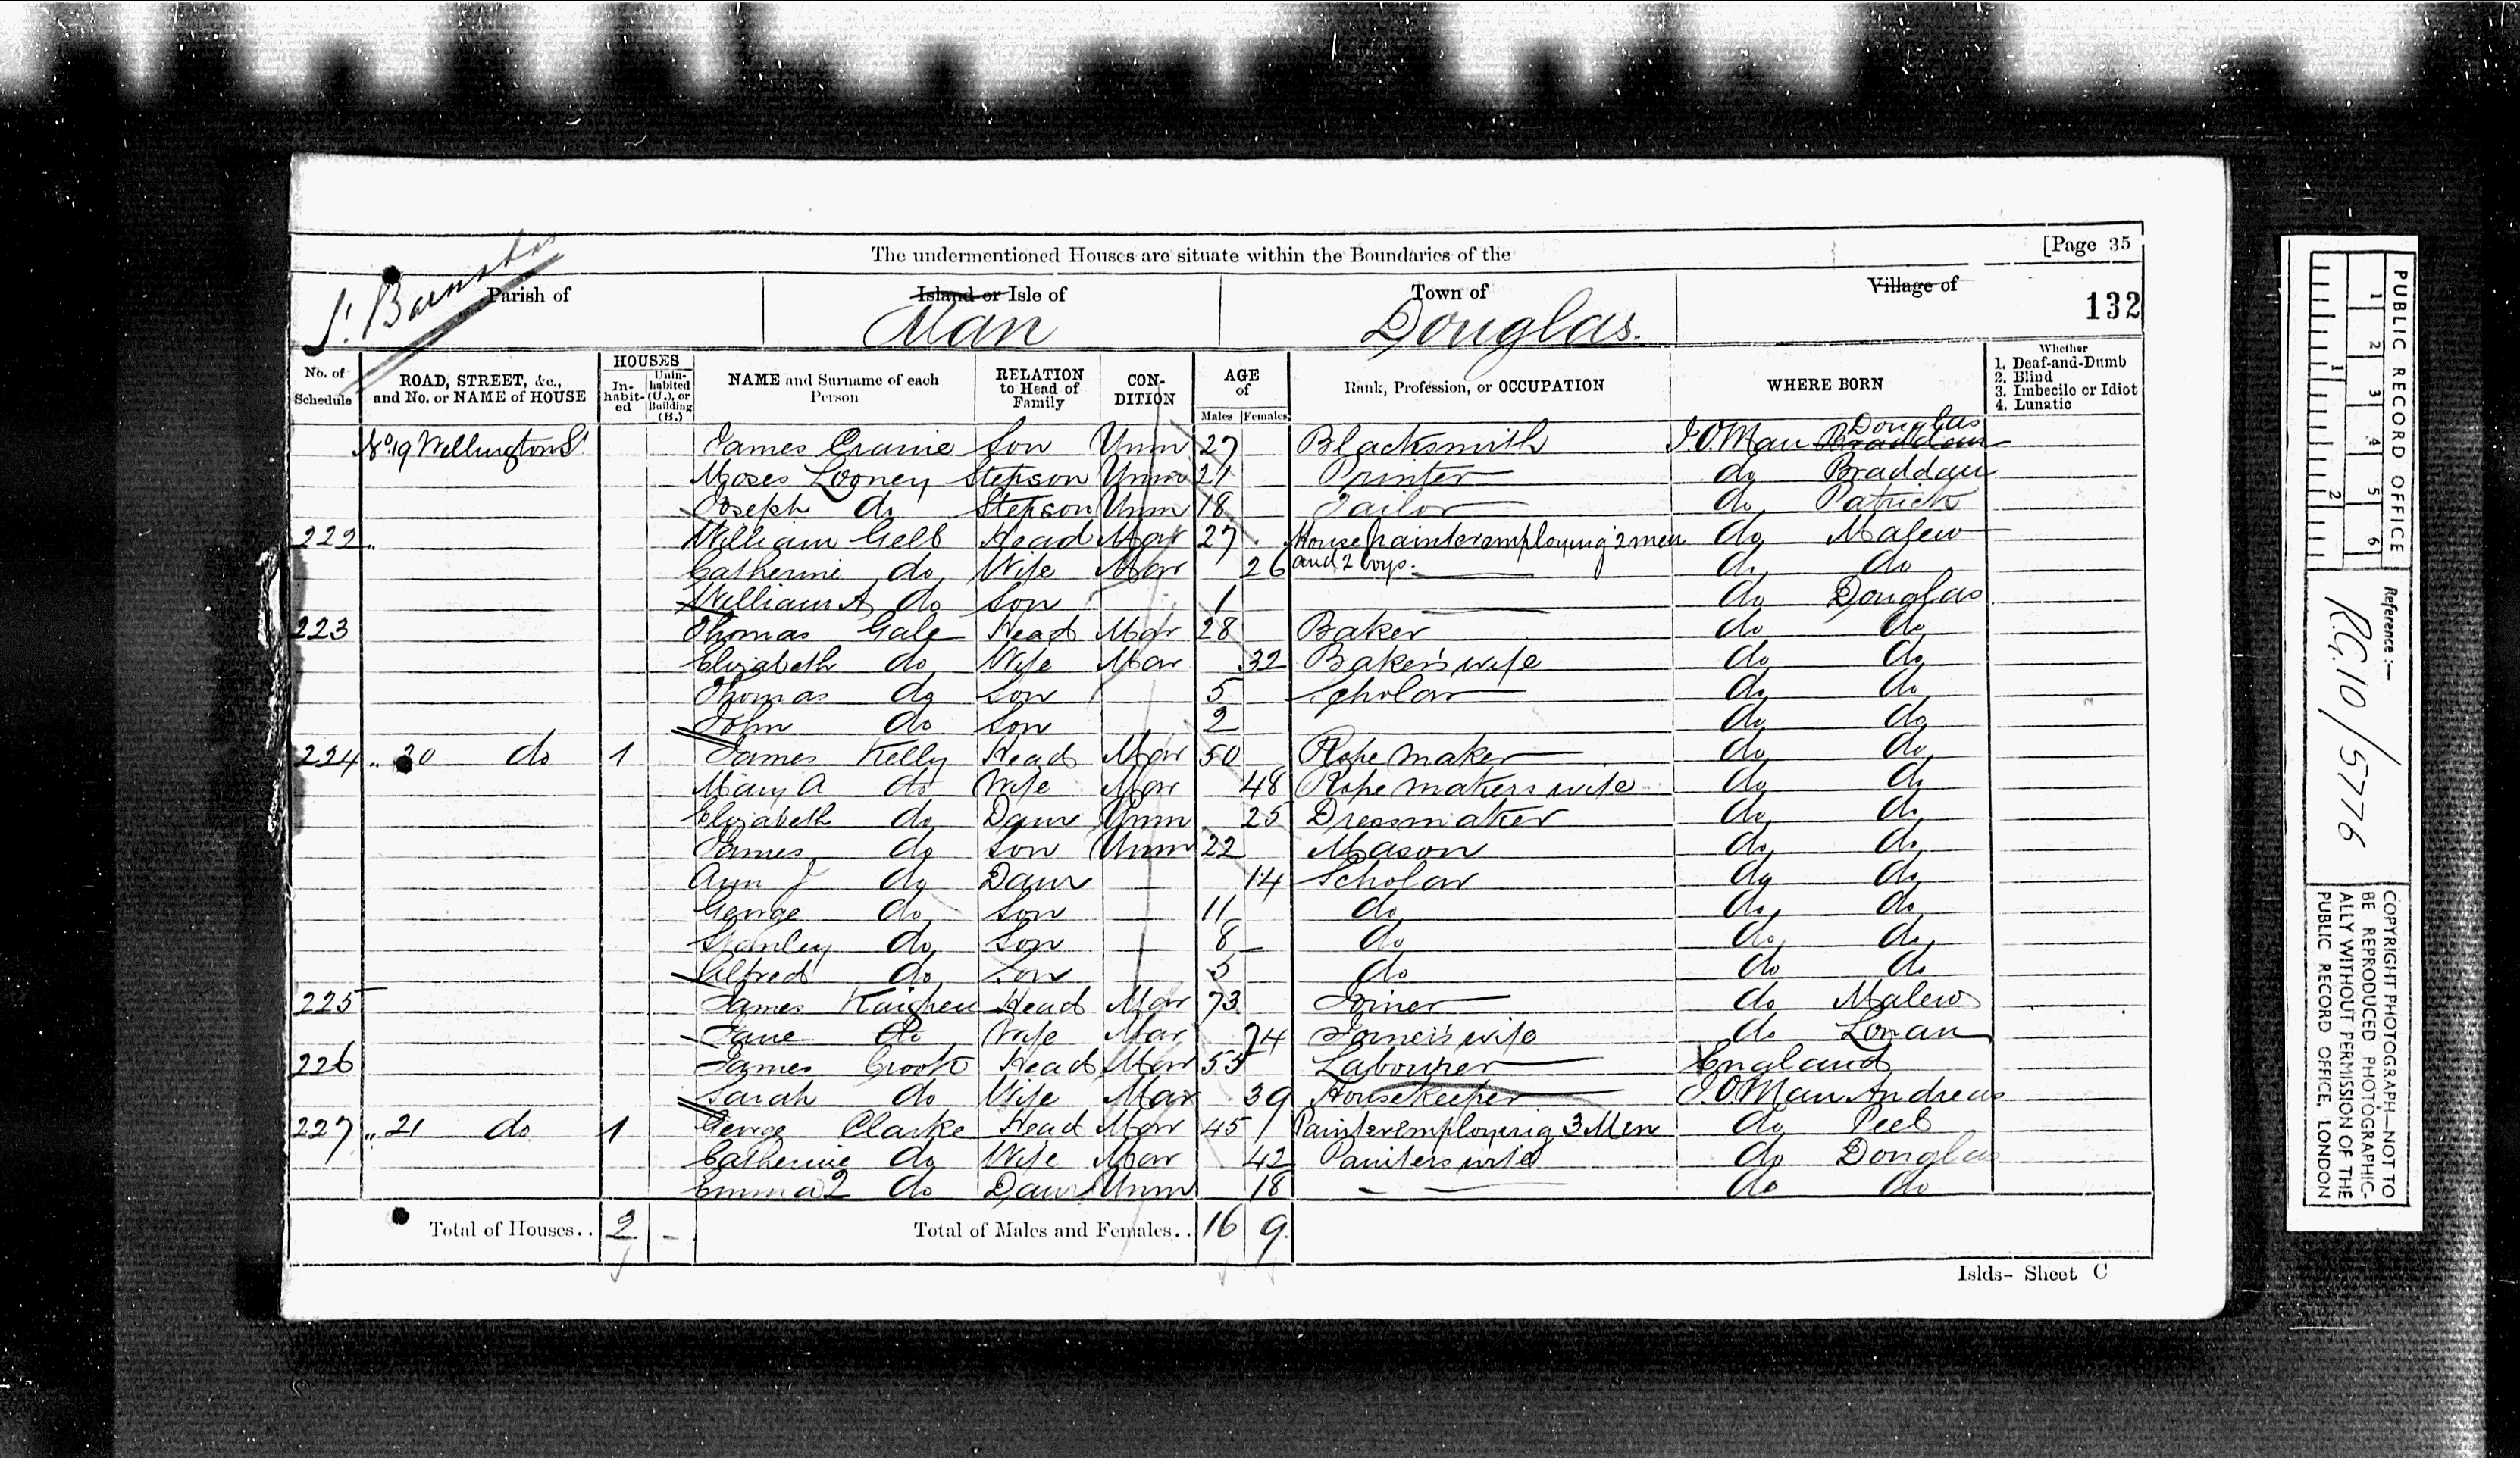 [Page 35
The undermentioned Houses are situate within the Boundaries of the
Parish of Island or Isle of Town of Village of
St Barnabas Man Douglas. 132
No. of Schedule ROAD, STREET, &c., and No. or NAME of HOUSE HOUSES In-habit-ed Unin-habited (U.), or Building (B.) NAME and Surname of each Person RELATION to Head of Family CON-DITION AGE of Males Females Rank, Profession, or OCCUPATION WHERE BORN Whether 1. Deaf-and-Dumb 2. Blind 3. Imbecile or Idiot 4. Lunatic
No. 19 Wellington St James Craine Son Unm 27 Blacksmith I.O.Man Braddan Douglas
Moses Looney Stepson Unm 21 Printer do Braddan
Joseph do Stepson Unm 18 Tailor do Patrick
222 " William Gell Head Mar 27 House painter employing 2 men do Malew
Catherine do Wife Mar 26 and 2 boys. do do
William A do Son 1 do Douglas
223 Thomas Gale Head Mar 28 Baker do do
Elizabeth do Wife Mar 32 Baker's wife do do
Thomas do Son 5 Scholar do do
John do Son 2 do do
224 " 20 do 1 James Kelly Head Mar 50 Rope maker do do
Mary A do Wife Mar 48 Rope makers wife do do
Elizabeth do Daur Unm 25 Dressmaker do do
James do Son Unm 22 Mason do do
Ann J do Daur 14 Scholar do do
George do Son 11 do do do
Stanley do Son 8 do do do
Alfred do Son 5 do do do
225 James Kaighen Head Mar 73 Joiner do Malew
Jane do Wife Mar 74 Joiner's wife do Lonan
226 James Crook Head Mar 55 Labourer England
Sarah do Wife Mar 39 Housekeeper I.O.Man Andreas
227 " 21 do 1 George Clarke Head Mar 45 Painter employing 3 Men do Peel
Catherine do Wife Mar 42 Painters wife do Douglas
Emma do Daur Unm 18 do do
Total of Houses.. 2 - Total of Males and Females.. 16 9
Islds- Sheet C
PUBLIC RECORD OFFICE
1 2 3 4 5 6
1 2
Reference :—
R.G. 10/5776
COPYRIGHT PHOTOGRAPH—NOT TO
BE REPRODUCED PHOTOGRAPHIC-
ALLY WITHOUT PERMISSION OF THE
PUBLIC RECORD OFFICE, LONDON